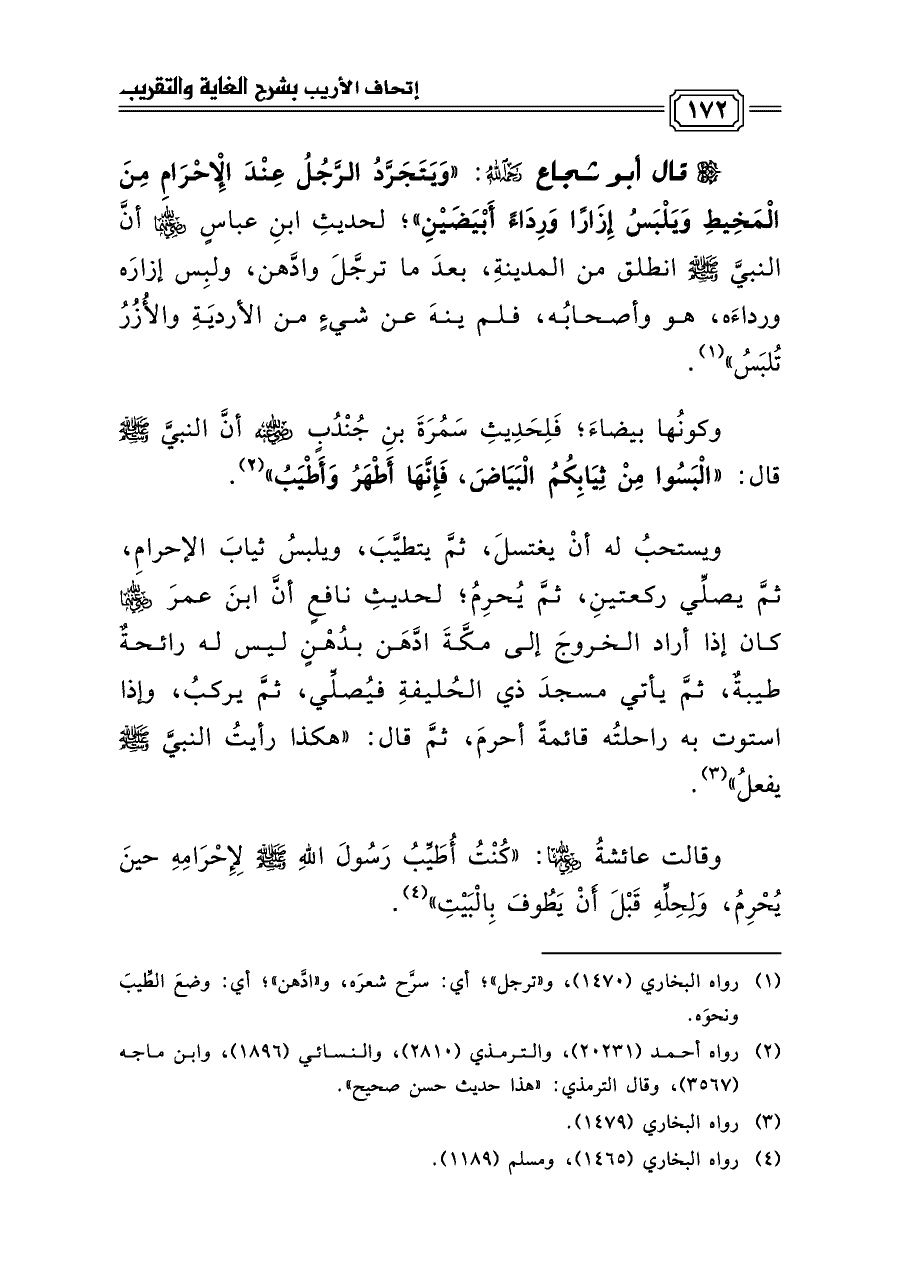 إتحاف الأريب بشرح الغاية والتقريب
١٧٢
قال أبو شجاع رَحِمَهُ ٱللَّهُ: «وَيَتَجَرَّدُ الرَّجُلُ عِنْدَ الْإِحْرَامِ مِنَ
الْمَخِيطِ وَيَلْبَسُ إِزَارًا وَرِدَاءً أَبْيَضَيْنِ»؛ لحديثِ ابنِ عباسٍ رَضِيَ ٱللَّهُ عَنْهُمَا أنَّ
النبيَّ ﷺ انطلق من المدينةِ، بعدَ ما ترجَّلَ وادَّهن، ولبِس إزارَه
ورداءَه، هو وأصحابُه، فلم ينهَ عن شيءٍ من الأرديَةِ والأُزُرُ
تُلبَسُ»(١).
وكونُها بيضاءَ؛ فَلِحَدِيثِ سَمُرَةَ بنِ جُنْدُبٍ رَضِيَ ٱللَّهُ عَنْهُ أنَّ النبيَّ ﷺ
قال: «الْبَسُوا مِنْ ثِيَابِكُمُ الْبَيَاضَ، فَإِنَّهَا أَطْهَرُ وَأَطْيَبُ»(٢).
ويستحبُ له أنْ يغتسلَ، ثمَّ يتطيَّبَ، ويلبسُ ثيابَ الإحرامِ،
ثمَّ يصلِّي ركعتينِ، ثمَّ يُحرِمُ؛ لحديثِ نافعٍ أنَّ ابنَ عمرَ رَضِيَ ٱللَّهُ عَنْهُمَا
كان إذا أراد الخروجَ إلى مكَّةَ ادَّهَن بدُهْنٍ ليس له رائحةٌ
طيبةٌ، ثمَّ يأتي مسجدَ ذي الحُليفةِ فيُصلِّي، ثمَّ يركبُ، وإذا
استوت به راحلتُه قائمةً أحرمَ، ثمَّ قال: «هكذا رأيتُ النبيَّ ﷺ
يفعلُ»(٣).
وقالت عائشةُ رَضِيَ ٱللَّهُ عَنْهَا: «كُنْتُ أُطَيِّبُ رَسُولَ اللهِ ﷺ لِإِحْرَامِهِ حينَ
يُحْرِمُ، وَلِحِلِّهِ قَبْلَ أَنْ يَطُوفَ بِالْبَيْتِ»(٤).
(١) رواه البخاري (١٤٧٠)، و«ترجل»؛ أي: سرَّح شعرَه، و«ادَّهن»؛ أي: وضعَ الطِّيبَ
ونحوَه.
(٢) رواه أحمد (٢٠٢٣١)، والترمذي (٢٨١٠)، والنسائي (١٨٩٦)، وابن ماجه
(٣٥٦٧)، وقال الترمذي: «هذا حديث حسن صحيح».
(٣) رواه البخاري (١٤٧٩).
(٤) رواه البخاري (١٤٦٥)، ومسلم (١١٨٩).